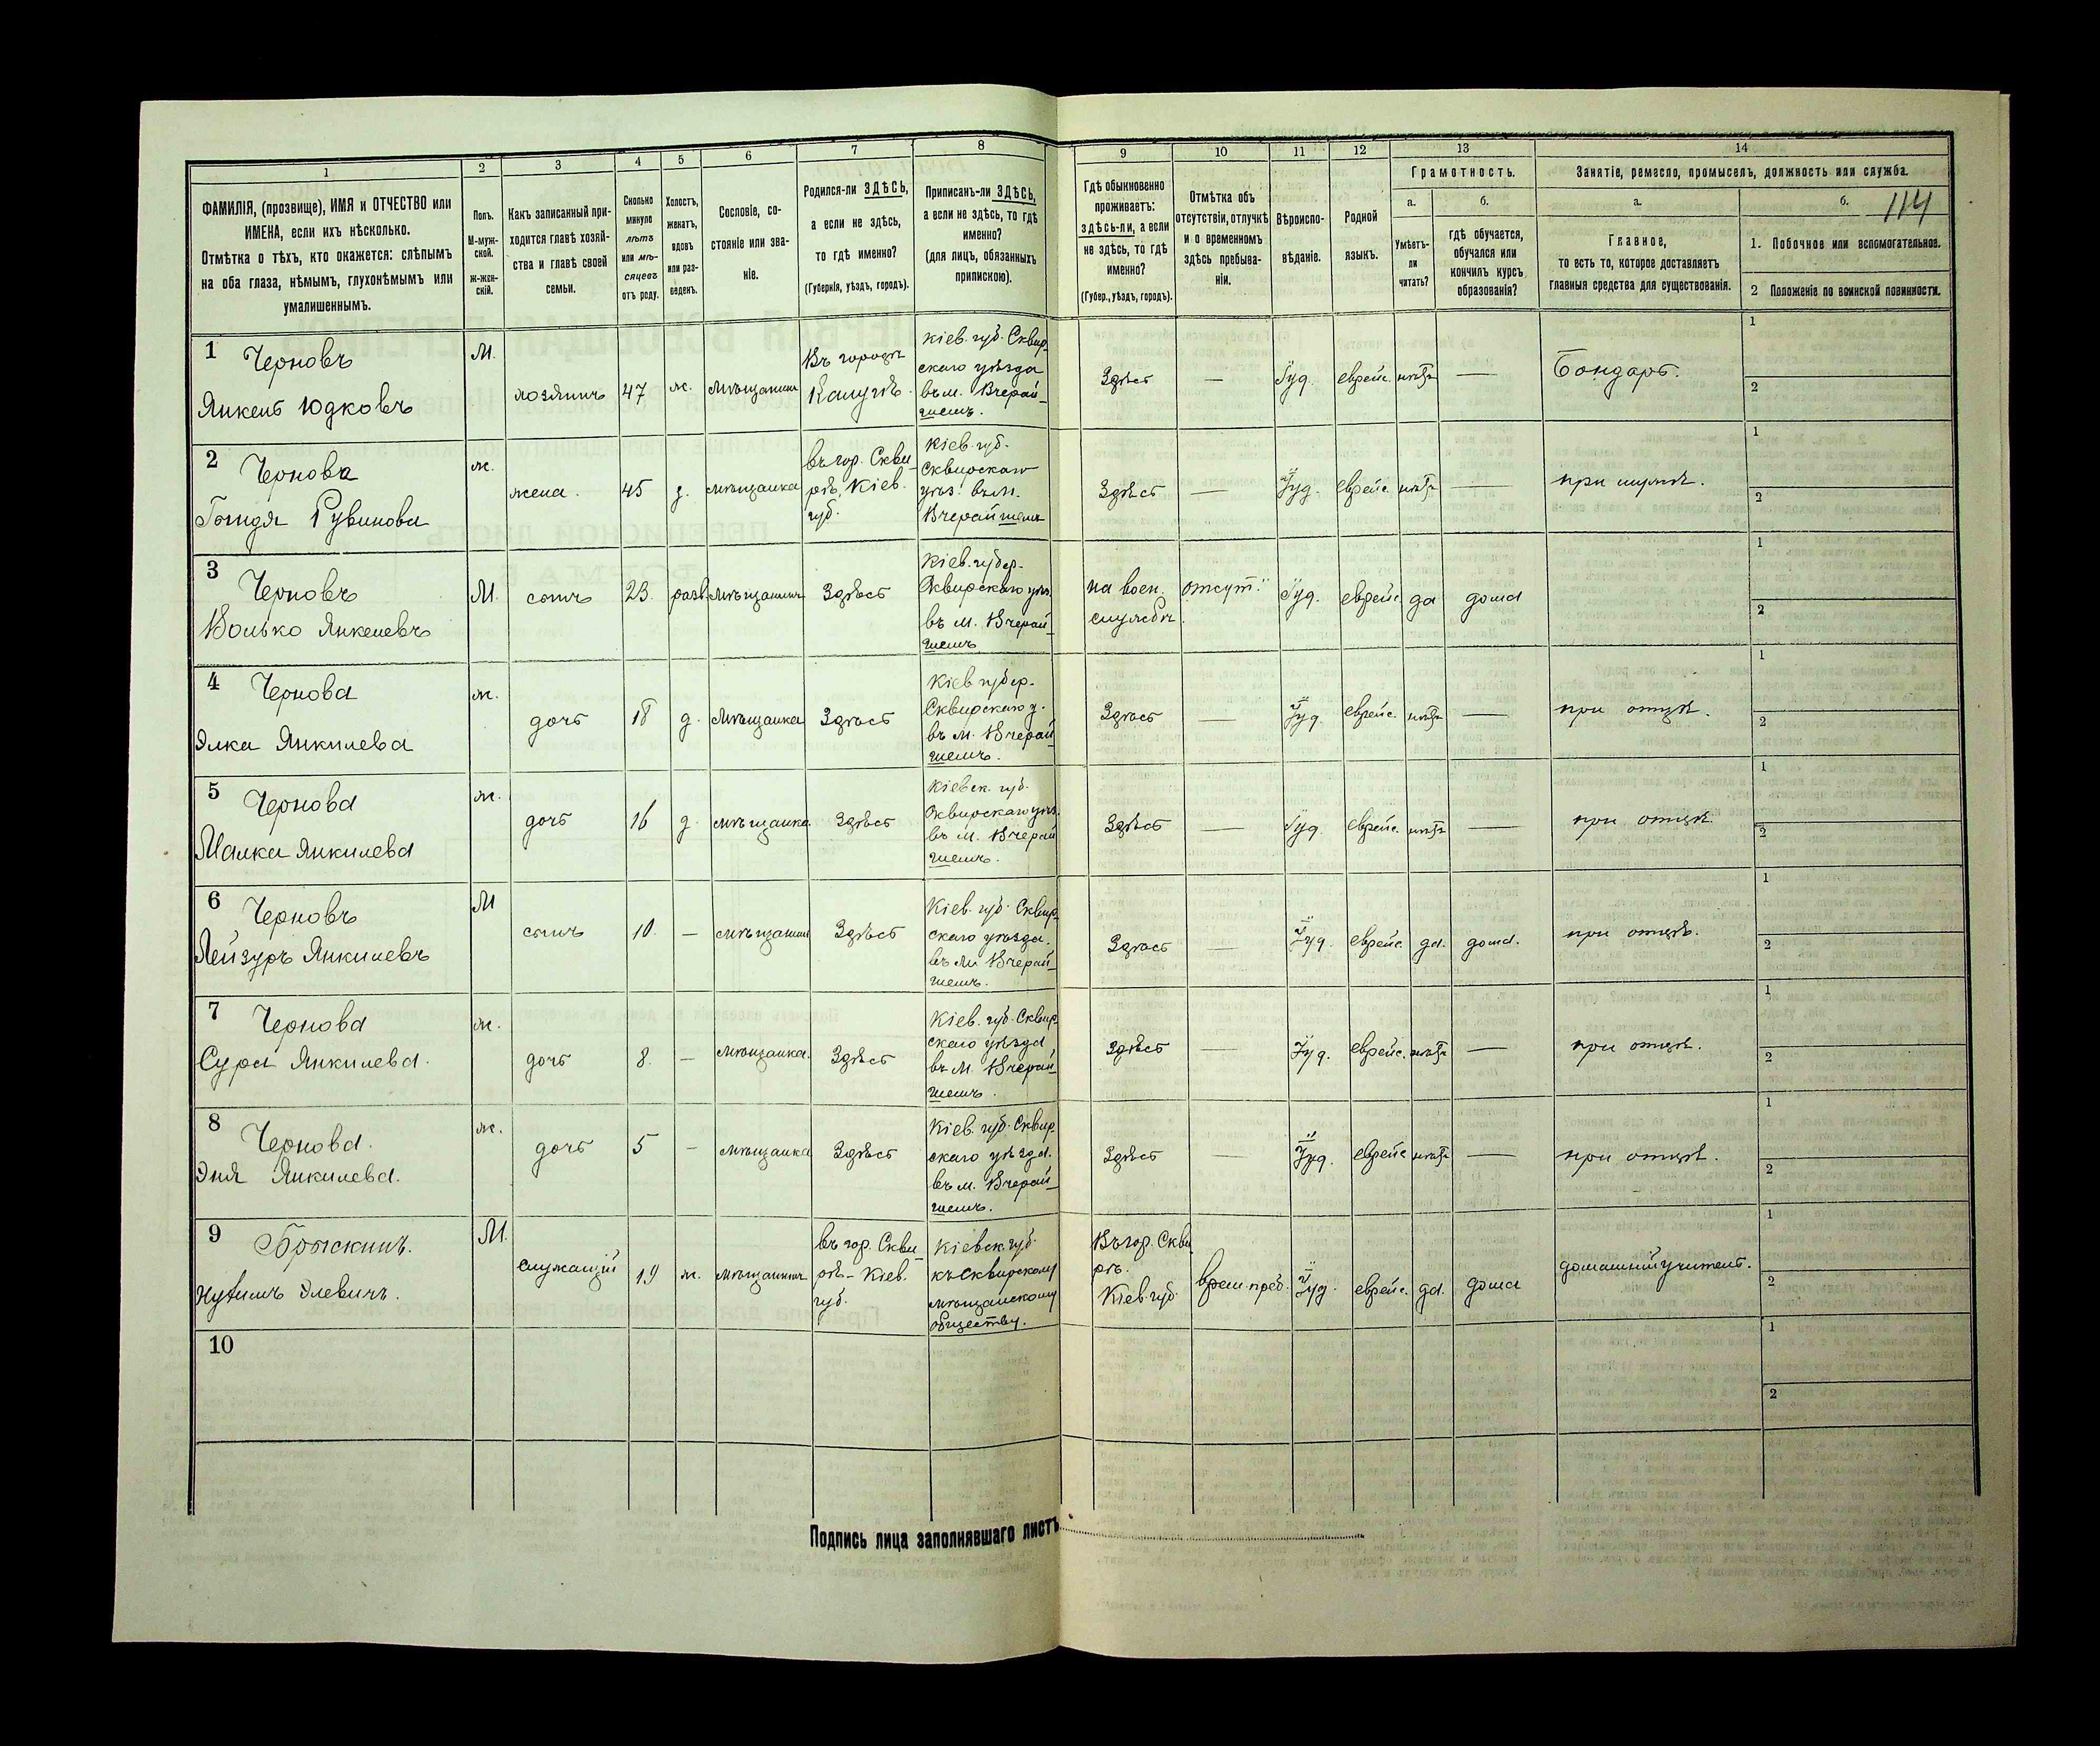 1
2
3
4
5
6
7
8
9
10
11
12
13
14
ФАМИЛІЯ, (прозвище), ИМЯ и ОТЧЕСТВО или
ИМЕНА, если ихъ нѣсколько.
Отмѣтка о тѣхъ, кто окажется: слѣпымъ
на оба глаза, нѣмымъ, глухонѣмымъ или
умалишеннымъ.
Полъ.
М-муж-
ской.
Ж-жен-
скій.
Какъ записанный при-
ходится главѣ хозяй-
ства и главѣ своей
семьи.
Сколько
минуло
лѣтъ
или мѣ-
сяцевъ
отъ роду.
Холостъ,
женатъ,
вдовъ
или раз-
веденъ.
Сословіе, со-
стояніе или зва-
ніе.
Родился-ли ЗДѢСЬ,
а если не здѣсь,
то гдѣ именно?
(Губернія, уѣздъ, городъ).
Приписанъ-ли ЗДѢСЬ,
а если не здѣсь, то гдѣ
именно?
(для лицъ, обязанныхъ
припискою).
Гдѣ обыкновенно
проживаетъ:
здѣсь-ли, а если
не здѣсь, то гдѣ
именно?
(Губер., уѣздъ, городъ).
Отмѣтка объ
отсутствіи, отлучкѣ
и о временномъ
здѣсь пребыва-
ніи.
Вѣроиспо-
вѣданіе.
Родной
языкъ.
Грамотность.
а.
Умѣетъ-
ли
читать?
б.
гдѣ обучается,
обучался или
кончилъ курсъ
образованія?
Занятіе, ремесло, промыселъ, должность или служба.
а.
Главное,
то есть то, которое доставляетъ
главныя средства для существованія.
б.
114
1. Побочное или вспомогательное.
2 Положеніе по воинской повинности.
1
Черновъ
Янкель Юдковъ
М.
хозяинъ
47
ж.
мѣщанинъ
Въ городѣ
Кіев. губ. Сквир-
скаго уѣзда
въ м. Вчерай-
шемъ.
Здѣсь
—
Іуд.
еврейс.
нѣтъ
—
Бондарь.
1
2
2
Чернова
Рувинова
ж.
жена.
45
з.
мѣщанка
въ гор. Скви-
рѣ, Кіев.
губ.
Кіев. губ.
Сквирскаго
уѣз. въ м.
Вчерайшемъ
Здѣсь
—
Іуд.
еврейс.
нѣтъ
—
при мужѣ.
1
2
3
Черновъ
Волько Янкелевъ
М.
сынъ
23.
мѣщанинъ
Здѣсь
Кіев. губер.
Сквирскаго уѣз.
въ м. Вчерай-
шемъ
на воен.
службѣ.
отсут.
Іуд.
еврейс
да
дома
1
2
4
Чернова
Элка Янкилева
ж.
дочь
18
д.
мѣщанка
Здѣсь
Кіев. губер.
Сквирскаго у.
въ м. Вчерай-
шемъ.
Здѣсь
—
Іуд.
еврейс.
нѣтъ
—
при отцѣ.
1
2
5
Чернова
Малка Янкилева
ж.
дочь
16
д.
мѣщанка.
Здѣсь
Кіевск. губ.
Сквирскаго уѣз.
въ м. Вчерай
шемъ.
Здѣсь
—
Іуд
еврейс.
нѣтъ
—
при отцѣ.
1
2
6
Черновъ
Лейзуръ Янкилевъ
М
сынъ
10.
—
мѣщанинъ
Здѣсь
Кіев. губ. Сквир-
скаго уѣзда.
въ м. Вчерай-
шемъ.
Здѣсь
—
Іуд.
еврейс.
да.
дома.
при отцѣ.
1
2
7
Чернова
Сура Янкилева.
ж.
дочь
8.
—
мѣщанка.
Здѣсь
Кіев. губ. Сквир-
скаго уѣзда
въ м. Вчерай-
шемъ.
Здѣсь
—
Іуд.
еврейс.
нѣтъ
—
при отцѣ.
1
2
8
Чернова.
Эня Янкилева.
ж.
дочь
5
—
мѣщанка
Здѣсь
Кіев. губ. Сквир-
скаго уѣзда.
въ м. Вчерай-
шемъ.
Здѣсь
—
Іуд.
еврейс
нѣтъ
—
при отцѣ.
1
2
9
Элевичъ.
М.
служащій
19
мѣщанинъ
въ гор. Скви-
рѣ – Кіев.
губ.
Кіевск. губ.
къ Сквирскому
мѣщанскому
обществу.
Въ гор. Скви
рѣ.
Кіев. губ.
врем. преб.
Іуд.
еврейс.
да.
дома
домашній учитель.
1
2
10
1
2
Подпись лица заполнявшаго листъ